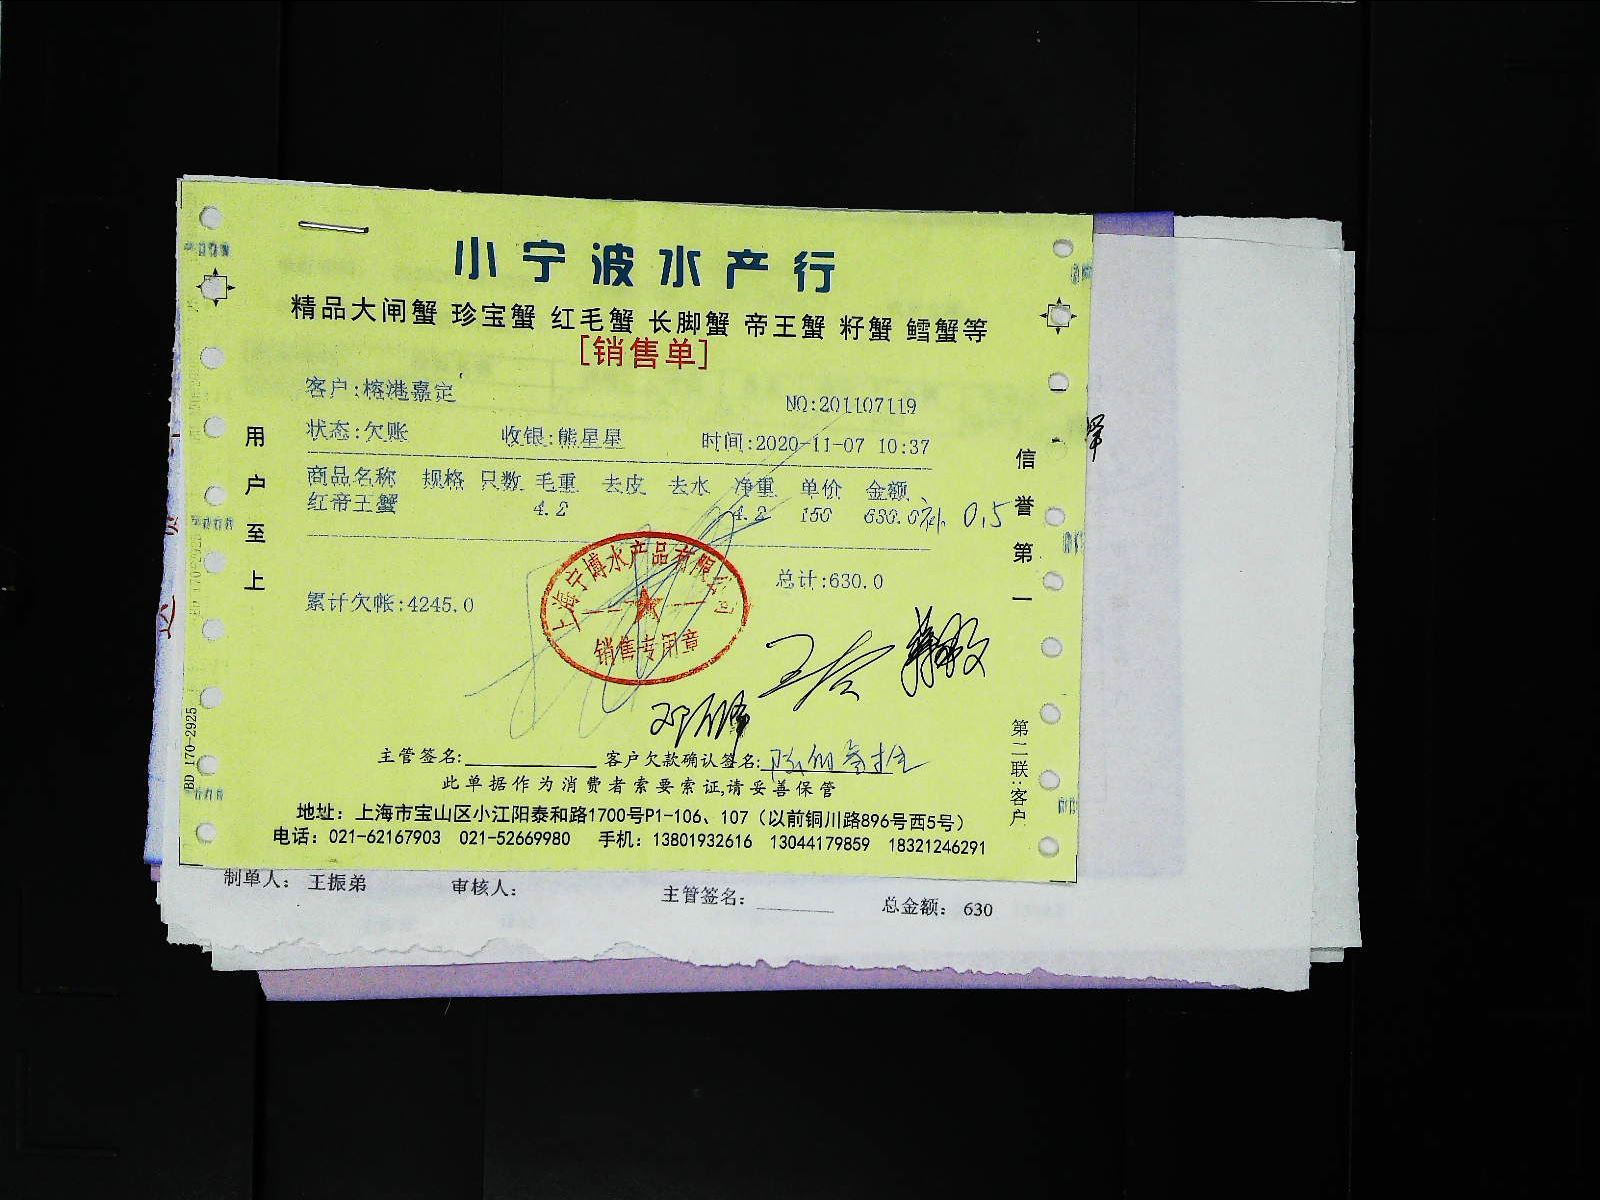 小宁波水产行
精品大闸蟹 珍宝蟹 红毛蟹 长脚蟹 帝王蟹 籽蟹 鳕蟹等
[销售单]
客户:榕港嘉定
NO:201107119
状态:欠账 收银:熊星星 时间:2020-11-07 10:37
商品名称 规格 只数 毛重 去皮 去水 净重 单价 金额
红帝王蟹 4.2 4.2 150 630.0 补 0.5
总计:630.0
累计欠帐:4245.0
上海宁博水产品有限公司
销售专用章
用户至上
信誉第一
第二联:客户
BD 170-2925
主管签名: 客户欠款确认签名:
此单据作为消费者索要索证,请妥善保管
地址：上海市宝山区小江阳泰和路1700号P1-106、107（以前铜川路896号西5号）
电话：021-62167903 021-52669980 手机：13801932616 13044179859 18321246291
制单人： 王振弟 审核人： 主管签名： 总金额： 630